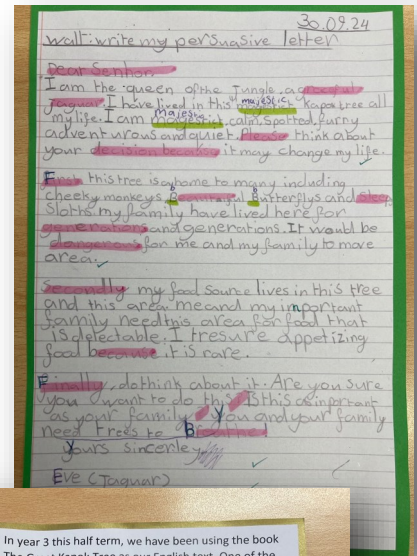 30.09.24
walt: write my persuasive letter
Dear Senhor
I am the queen of the Jungle, a graceful
Jaguar I have lived in this majestic Kapok tree all
majestic
my life. I am calm, spotted, furry
adventurous and quiet. Please think about
your decision because it may change my life.
First this tree is a home to many including
cheeky monkeys Butterflys and sleepy
Slotths my family have lived here for
generations and generations. It would be
dangerous for me and my family to move
area.
Secondly my food source lives in this tree
and this area me and my important
family need this area for food that
is delectable. I tresure appetizing
food because it is rare.
Finally, do think about it. Are you sure
you want to do this Is this as important
as your family you and your family
need trees to Breathe
yours sincerley
Eve (Jaguar)
In year 3 this half term, we have been using the book
The Great Kapok Tree as our English text. One of the